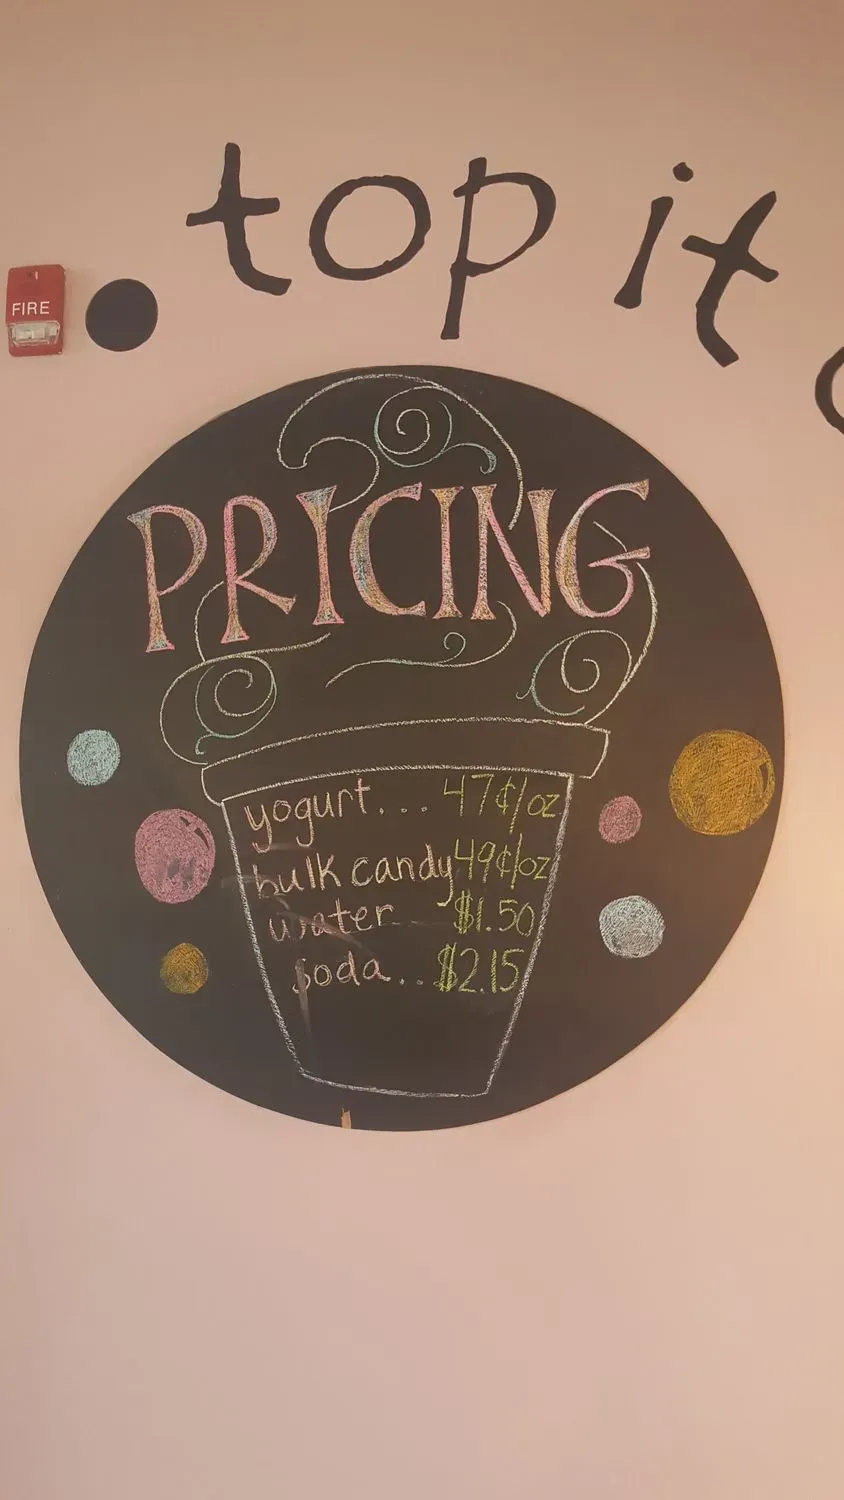 top it
FIRE
PRICING
yogurt... 47¢/oz
bulk candy 49¢/oz
water $1.50
soda.. $2.15